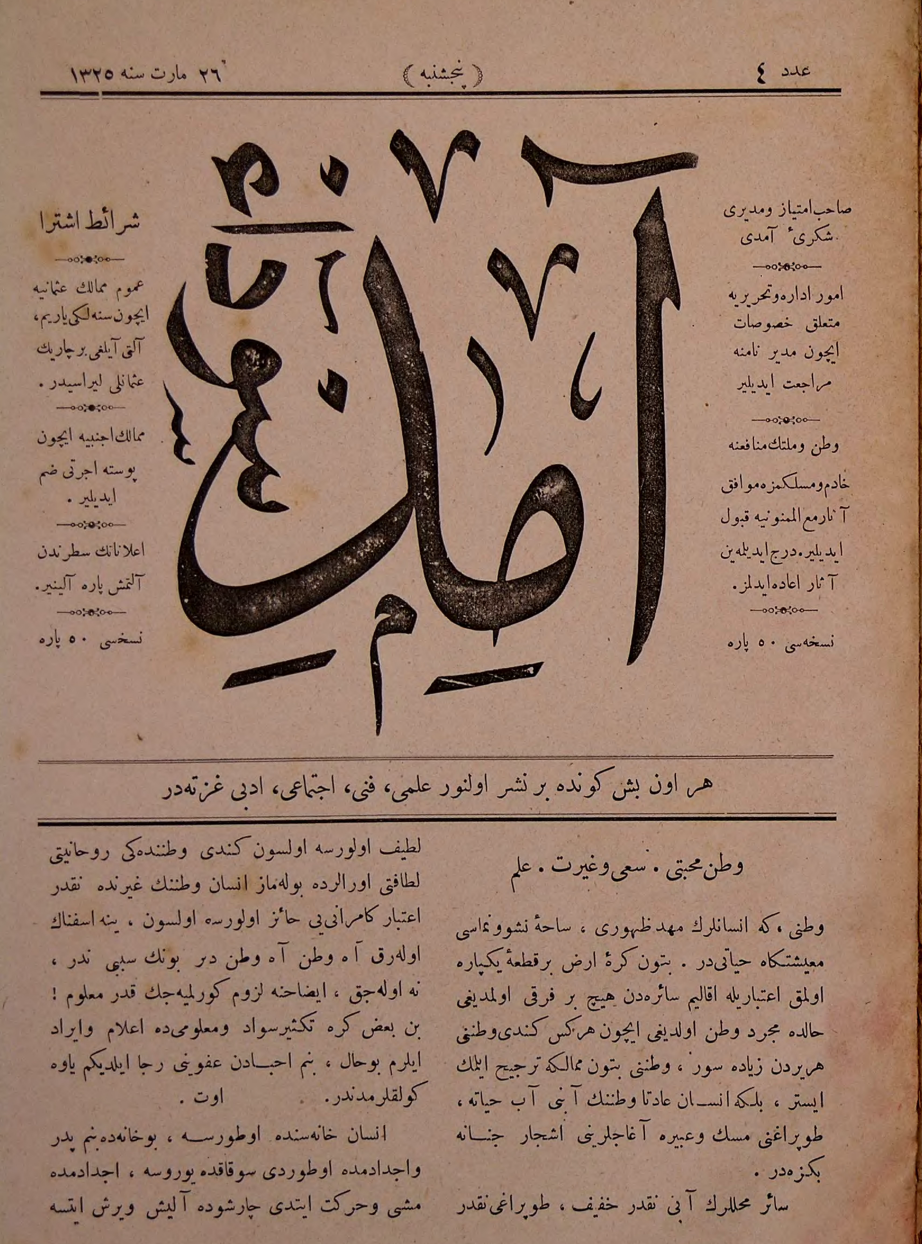 عدد ٤
﴿ پنجشنبه ﴾
٢٦ مارت سنه ١٣٢٥
صاحب امتیاز ومدیری
شکریٔ آمدی
امور اداره وتحریریه
متعلق خصوصات
ایچون مدیر نامنه
مراجعت ایدیلیر
وطن وملتك منافعنه
خادم ومسلکمزه موافق
آثار مع الممنونیه قبول
ایدیلیر. درج ایدیلمه‌ین
آثار اعاده ایدلمز.
نسخه‌سی ٥٠ پاره
شرائط اشترا
عموم ممالك عثمانیه
ایچون سنه‌لکی یاریم،
آلتی آیلغی بر چاریك
عثمانلی لیراسیدر .
ممالك اجنبیه ایچون
پوسته اجرتی ضم
ایدیلیر .
اعلاناتك سطرندن
آلتمش پاره آلینیر.
نسخسی ٥٠ پاره
هر اون بش کونده بر نشر اولنور علمی، فنی، اجتماعی، ادبی غزته‌در
وطن محبتی . سعی وغیرت . علم
وطنی ،که انسانلرك مهد ظهوری ، ساحهٔ نشوونماسی
معیشتکاه حیاتی‌در . بتون کرهٔ ارض بر قطعهٔ یکپاره
اولمق اعتباریله اقالیم سائره‌دن هیچ بر فرقی اولمدیغی
حالده مجرد وطن اولدیغی ایچون هرکس کندی وطننی
هریردن زیاده سور ، وطننی بتون ممالکه ترجیح ایتمك
ایستر ، بلکه انسان عادتا وطننك آبنی آب حیاته ،
طوپراغنی مسك وعبیره آغاجلرینی اشجار جنانه
بکزه‌در .
سائر محللرك آبی نقدر خفیف ، طوپراغی نقدر
لطیف اولورسه اولسون کندی وطننده‌کی روحانیتی
لطافتی اورالرده بوله‌ماز انسان وطننك غیرنده نقدر
اعتبار کامرانی‌یی حائز اولورسه اولسون ، ینه اسفناك
اوله‌رق آه وطن آه وطن دیر بونك سببی ندر ،
نه اوله‌جق ، ایضاحنه لزوم کورلمیه‌جك قدر معلوم !
بن بعض کره تکثیر سواد ومعلومی‌ده اعلام وایراد
ایلرم بوحال ، بنم احبادن عفوینی رجا ایلدیکم یاوه
کولقلرمدندر. اوت .
انسان خانه‌سنده اوطورسه ، بوخانه‌ده بنم پدر
واجدادمده اوطوردی سوقاقده یوروسه ، اجدادمده
مشی وحرکت ایتدی چارشوده آلیش ویرش ایتسه